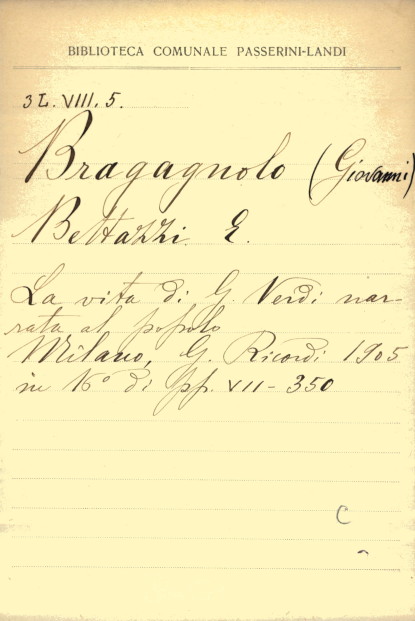 BIBLIOTECA COMUNALE PASSERINI-LANDI
3 L. VIII. 5.
Bragagnolo (Giovanni)
Bettazzi E.
La vita di G. Verdi nar-
rata al popolo
Milano, G. Ricordi 1905
in 16° di pp. VII-350
C